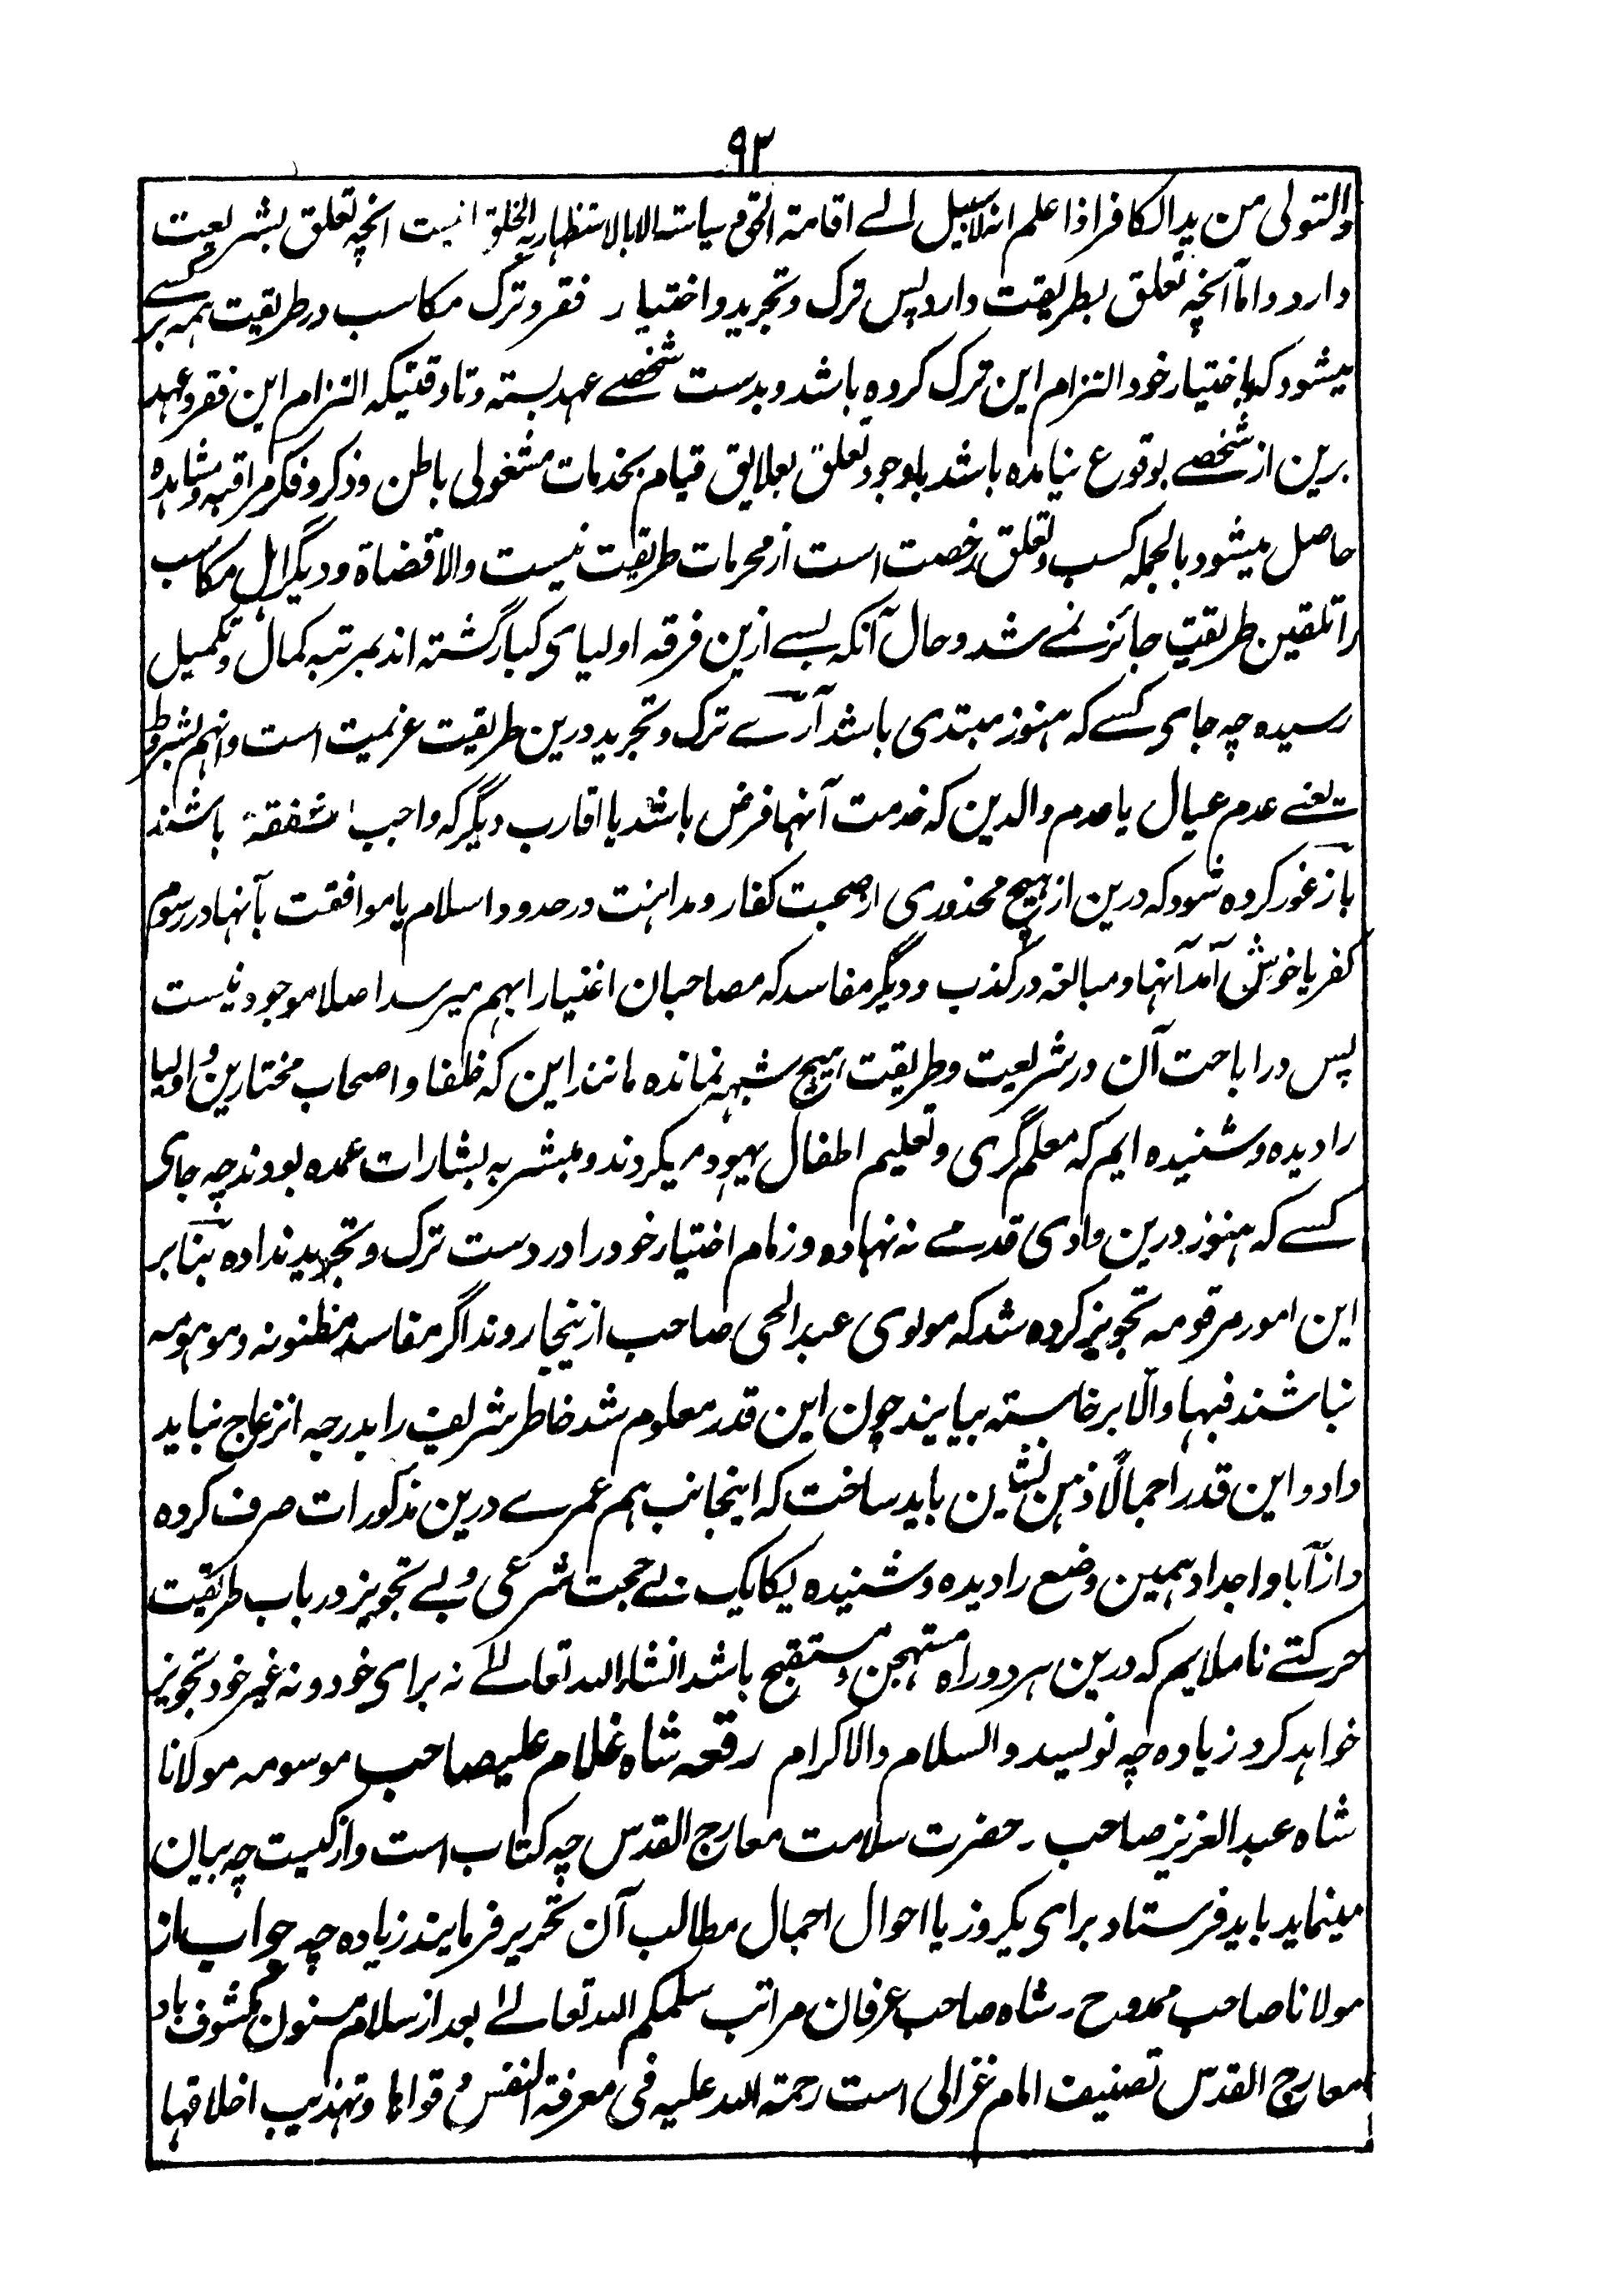 ۹۲
والتولی من ید الکافر اذا علم انه لاسبیل الے اقامة الحق و سیاسة الا بالاستظهار به الخلق انیست انچه تعلق بشریعت
دارد و اما آنچه تعلق بطریقت دارد پس ترک و تجرید و اختیار فقر و ترک مکاسب در طریقت همه بر کسے
میشود که باختیار خود التزام این ترک کرده باشد و بدست شخصے عهد بسته و تا وقتیکه التزام این فقر و عهد
برین از شخصے بوقوع نیامده باشد باوجود تعلق بعلایق قیام بخدمات مشغولی باطن و ذکر و فکر مراقبه و مشاهده
حاصل میشود بالجمله کسب و تعلق رخصت است از محرمات طریقت نیست والا قضاة و دیگر اهل مکاسب
را تلقین طریقت جائز نمے شد و حال آنکه بسے ازین فرقه اولیای کبار گشته اند بمرتبه کمال و تکمیل
رسیده چه جای کسے که هنوز مبتدی باشد آرے ترک و تجرید درین طریقت عزیمت است و انهم بشرط
یعنے عدم عیال یا عدم والدین که خدمت آنها فرض باشد یا اقارب دیگر که واجب شفقة باشند
باز غور کرده شود که درین از هیچ محذوری از صحبت کفار و مداهنت در حدود اسلام یا موافقت بآنها در رسوم
کفر یا خوش آمد آنها و مبالغه در کذب و دیگر مفاسد که مصاحبان اغنیا را بهم میرسد اصلا موجود نیست
پس در اباحت آن در شریعت و طریقت هیچ شبهه نمانده مانند این که خلفا و اصحاب مختارین و اولیا
را دیده و شنیده ایم که معلم گری و تعلیم اطفال یهود میکردند و مبشر به بشارات عمده بودند چه جای
کسے که هنوز درین وادی قدمے نه نهاده و زمام اختیار خود را در دست ترک و تجرید نداده بنابر
این امور مرقومه تجویز کرده شد که مولوی عبد الحی صاحب ازینجا روند اگر مفاسد مظنونه و موهومه
نباشند فبها والا برخاسته بیایند چون این قدر معلوم شد خاطر شریف را بدرجه انزعاج نباید
داد و این قدر اجمالاً ذهن نشین باید ساخت که اینجانب هم عمرے درین مذکورات صرف کرده
و از آبا و اجداد همین وضع را دیده و شنیده یکایک بے حجت شرعی و بے تجویز در باب طریقت
حرکتے ناملایم که درین هر دو راه مستهجن و مستقبح باشد انشاء الله تعالے نه برای خود و نه غیر خود تجویز
خواهد کرد زیاده چه نویسد والسلام والاکرام رقعه شاه غلام علیصاحب موسومه مولانا
شاه عبد العزیز صاحب۔ حضرت سلامت معارج القدس چه کتاب است و از کیست چه بیان
مینماید باید فرستاد برای یکروز یا احوال اجمال مطالب آن تحریر فرمایند زیاده چه جواب از
مولانا صاحب ممدوح۔ شاه صاحب عرفان مراتب سلمکم الله تعالےٰ بعد از سلام مسنون مکشوف باد
معارج القدس تصنیف امام غزالی است رحمة الله علیه فی معرفة النفس و قواها و تهذیب اخلاقها